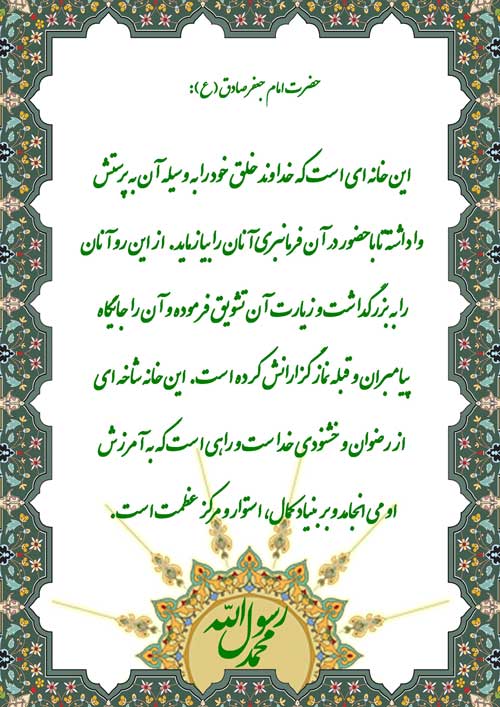 حضرت امام جعفر صادق (ع):
این خانه ای است که خداوند خلق خود را به وسیله آن به پرستش
واداشته تا با حضور در آن فرمانبری آنان را بیازماید. از این رو آنان
را به بزرگداشت و زیارت آن تشویق فرموده و آن را جایگاه
پیامبران و قبله نمازگزارانش کرده است. این خانه شاخه ای
از رضوان و خشنودی خداست و راهی است که به آمرزش
او می انجامد و بر بنیاد کمال، استوار و مرکز عظمت است.
محمد رسول الله